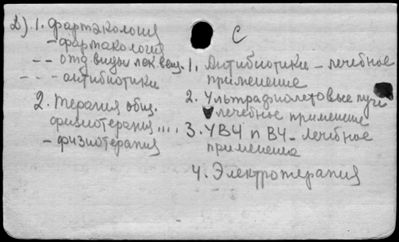 2) 1. фармакология
- фармакология
- - отд. виды лек. вещ.
- - - антибиотики
2. Терапия общ.
физиотерапия....
- физиотерапия
С
1. Антибиотики - лечебное
применение
2. Ультрафиолетовые лучи
лечебное применение
3. УВЧ и ВЧ - лечебное
применение
4. Электротерапия